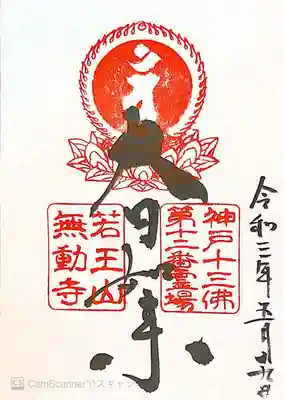 令和三年五月
神戸十三佛
第十二番霊場
大日如来
若王山
無動寺
CS CamScannerでスキャン